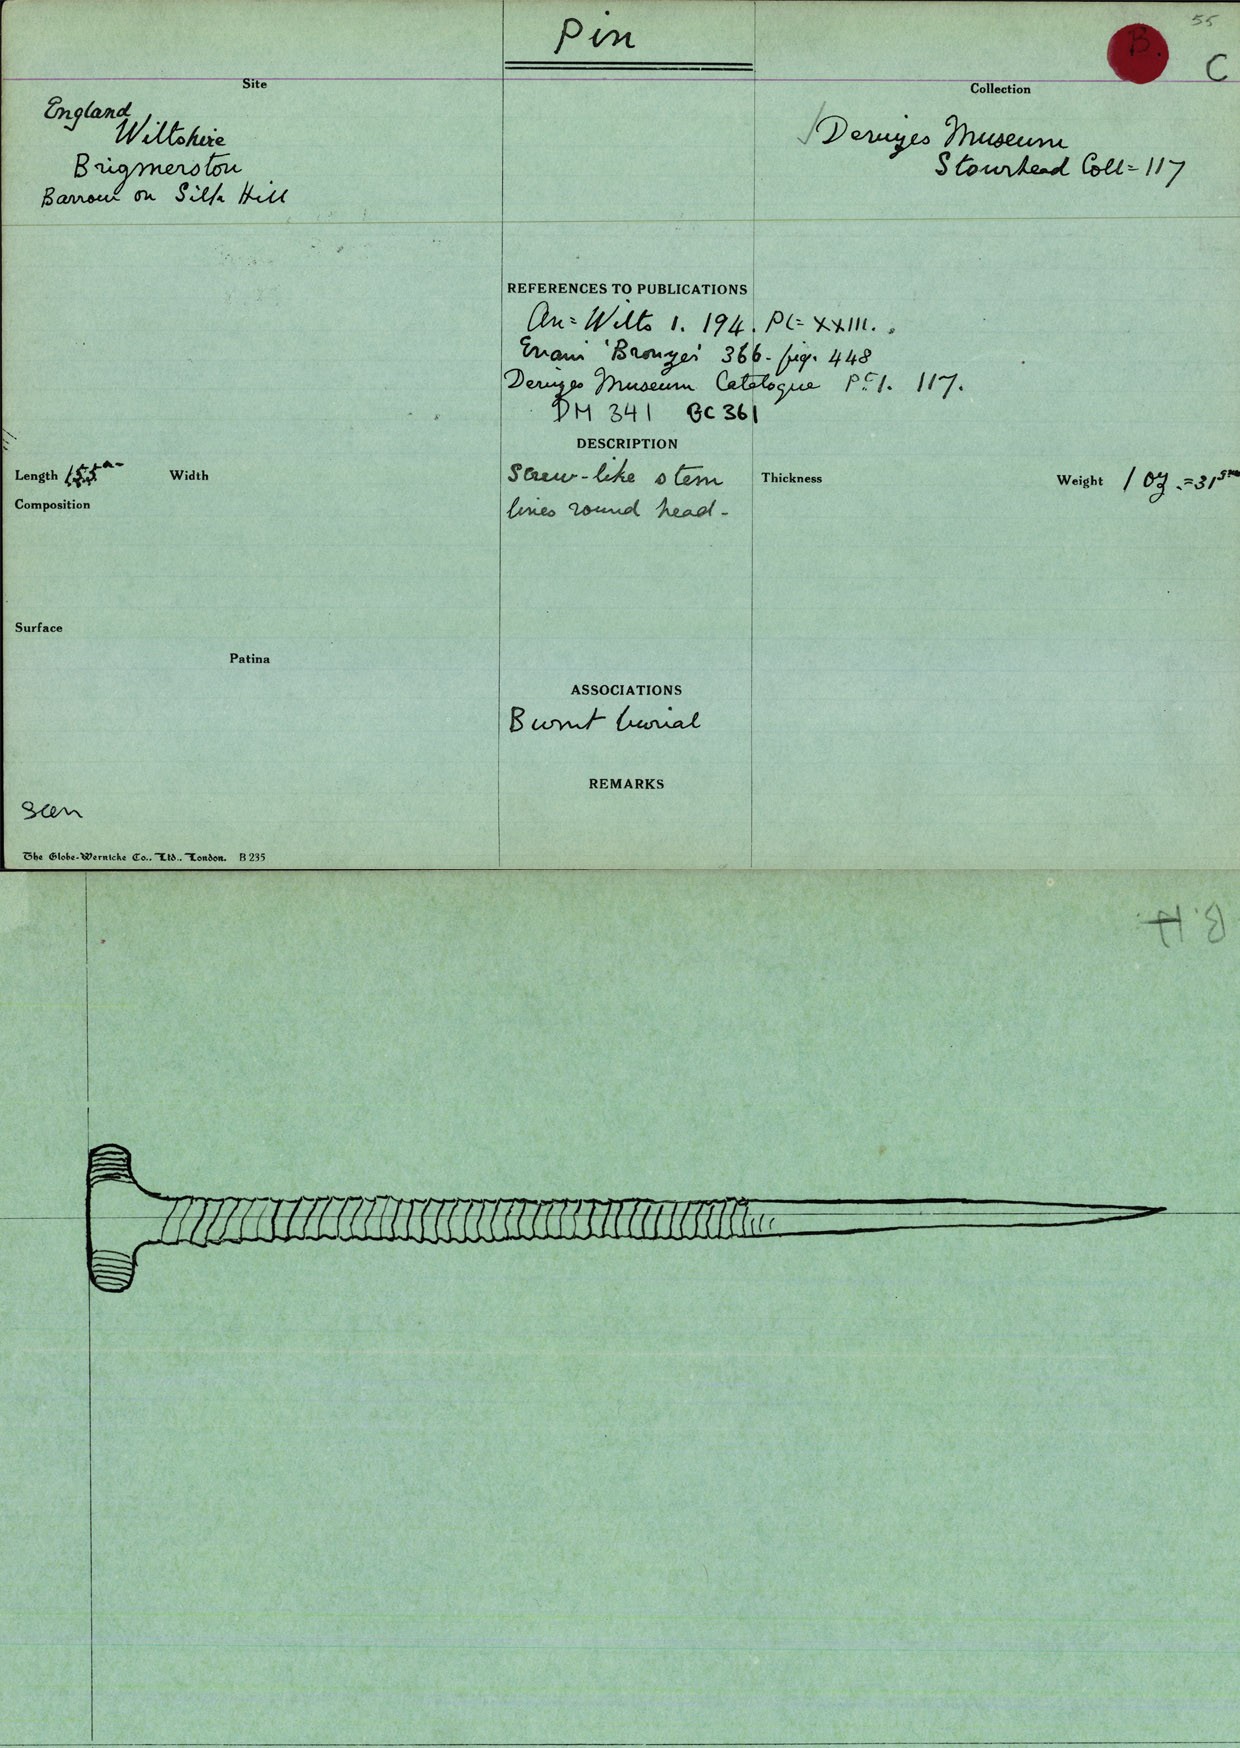 55
Pin
B.
C
Site
England
Wiltshire
Brigmerston
Barrow on Silk Hill
Collection
Devizes Museum
Stourhead Coll= 117
REFERENCES TO PUBLICATIONS
An= Wilts 1. 194. Pl= XXIII.
Evans 'Bronze' 366. fig. 448
Devizes Museum Catalogue Pt 1. 117.
DM 341 GC 361
DESCRIPTION
Length
Width
Screw-like stem
lines round head-
Thickness
Weight 1 oz .=31 gm
Composition
Surface
Patina
ASSOCIATIONS
Burnt burial
REMARKS
seen
The Globe-Wernicke Co., Ltd., London. B 235
B.H.